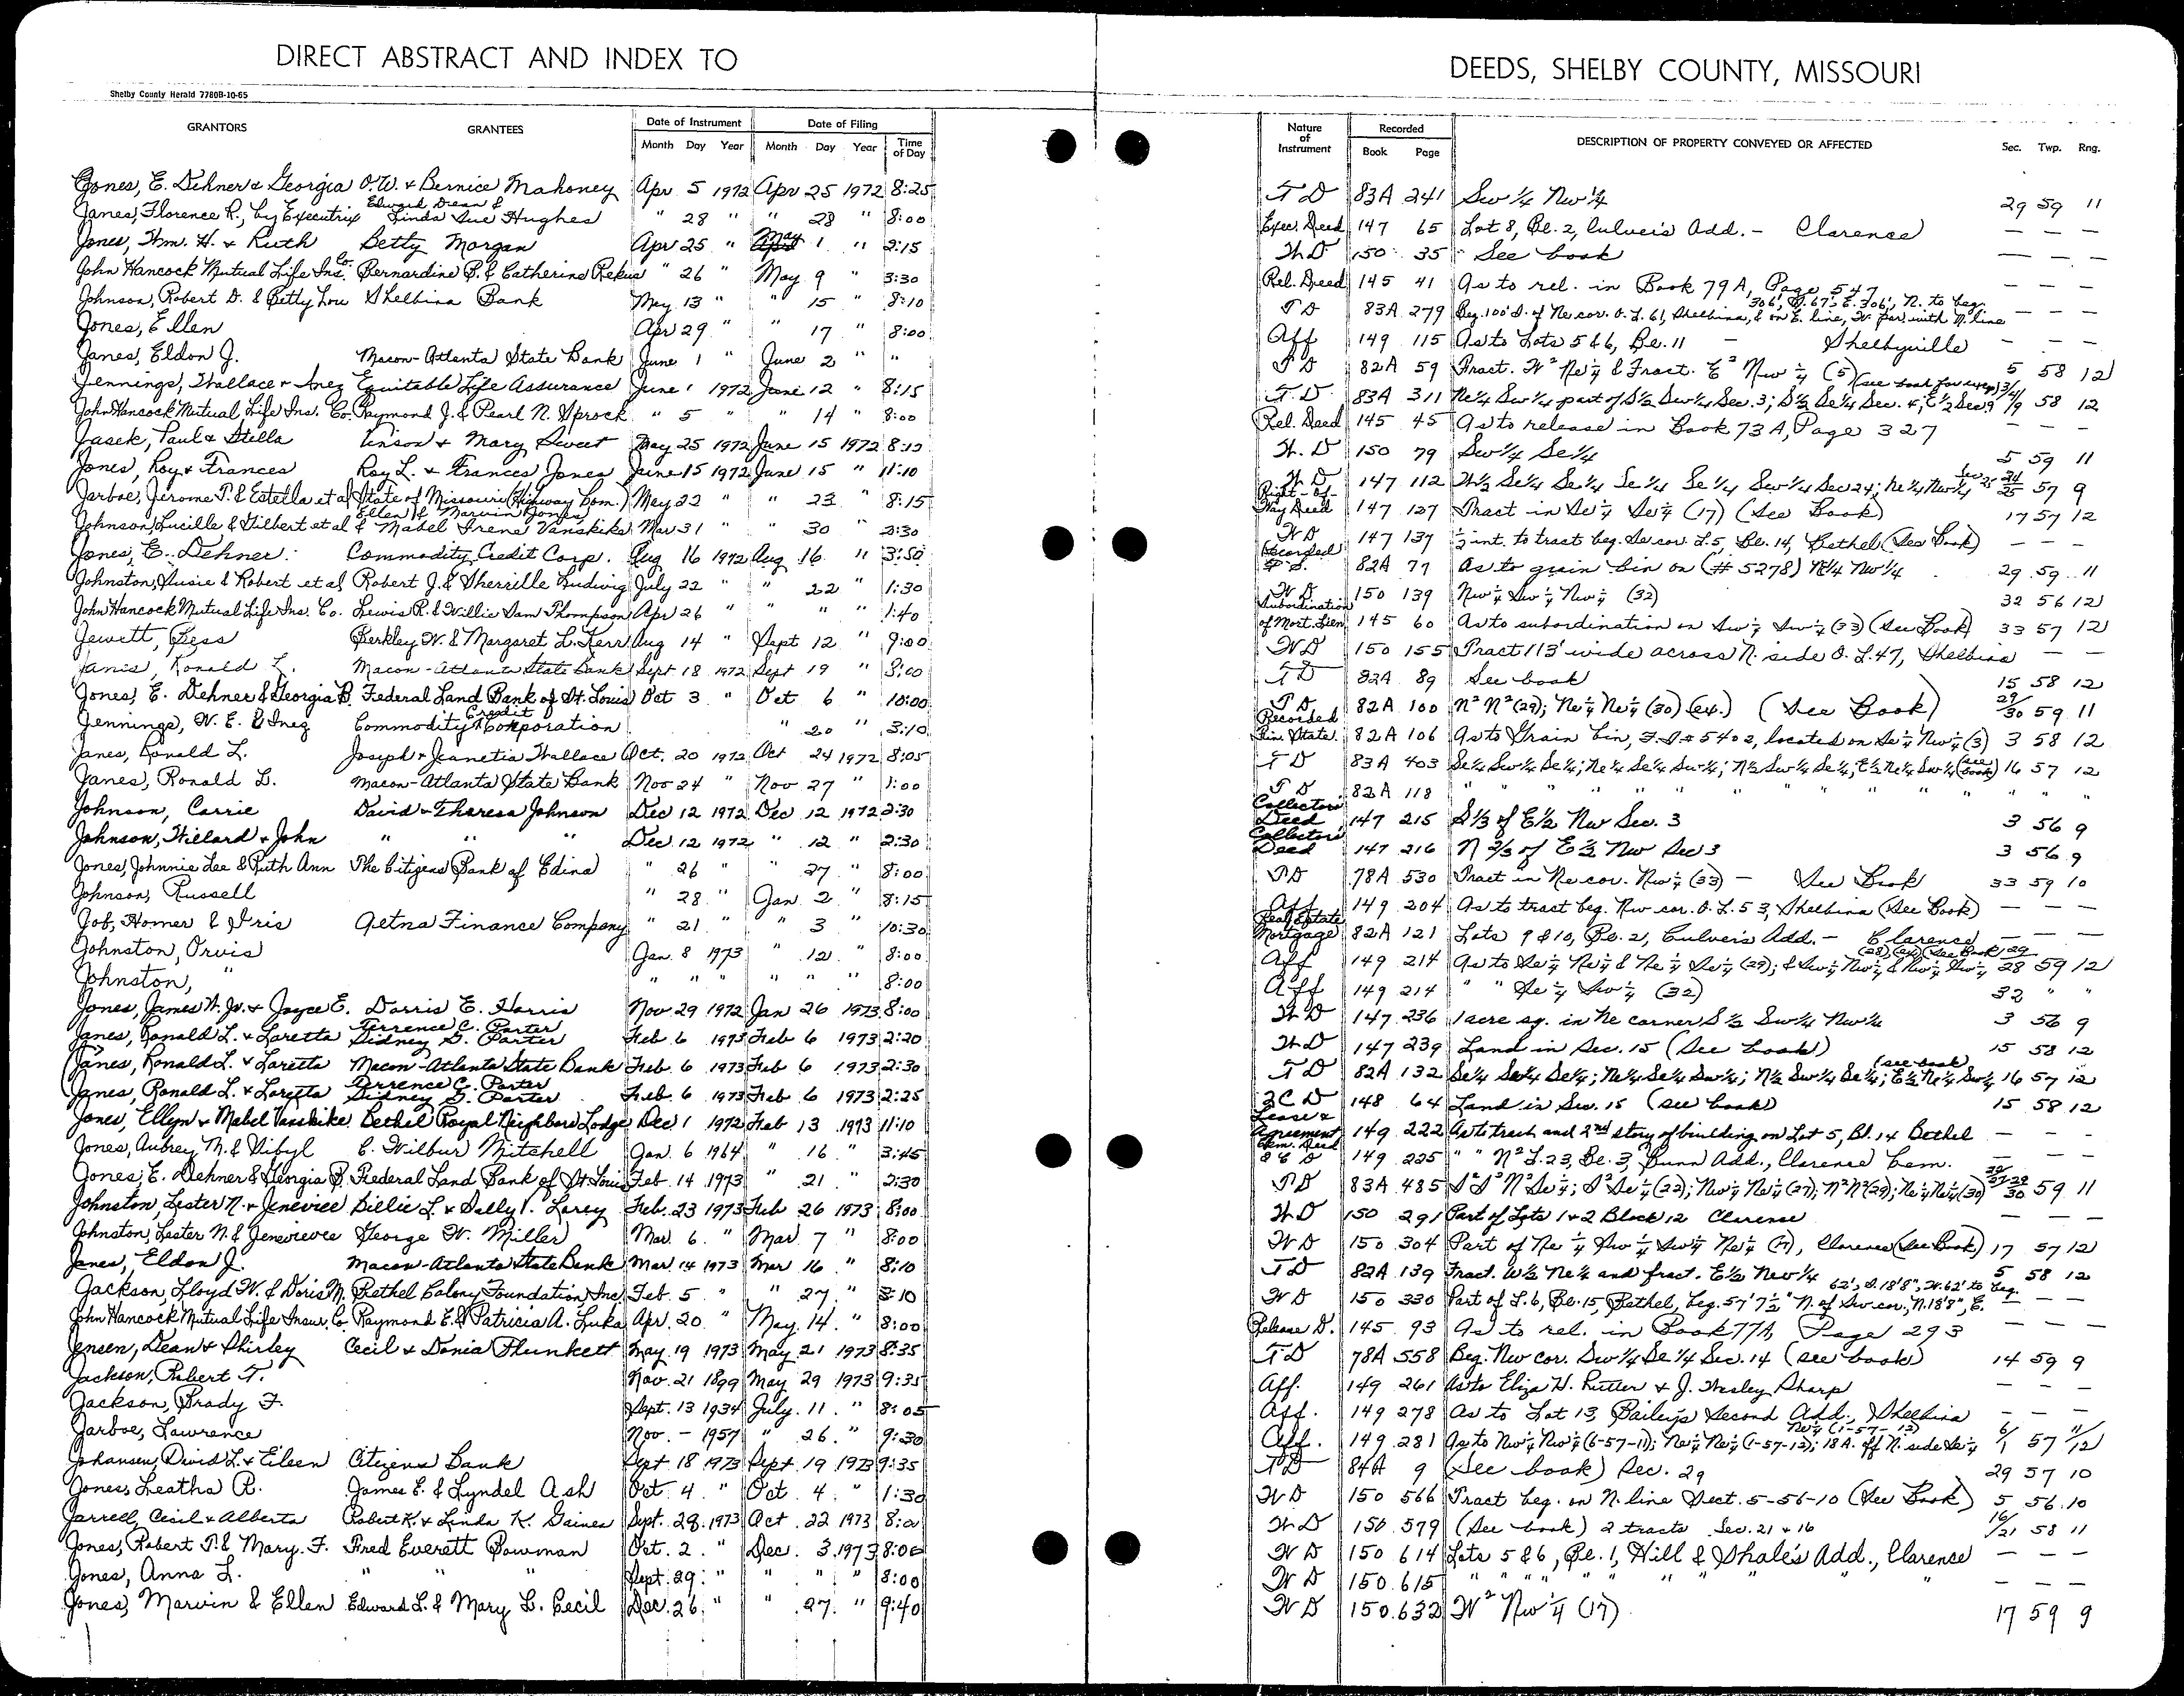 DIRECT ABSTRACT AND INDEX TO
DEEDS, SHELBY COUNTY, MISSOURI
Shelby County Herald 7780B-10-65
GRANTORS GRANTEES Date of Instrument Month Day Year Date of Filing Month Day Year Time of Day
Nature of Instrument Recorded Book Page DESCRIPTION OF PROPERTY CONVEYED OR AFFECTED Sec. Twp. Rng.
Jones, E. Dehner & Georgia O.W. & Bernice Mahoney Apr 5 1972 Apr 25 1972 8:25
Janes, Florence R., by Executrix Edward Dean & Linda Sue Hughes " 28 " " 28 " 8:00
Jones, Wm. H. & Ruth Betty Morgan Apr 25 " May 1 " 2:15
John Hancock Mutual Life Ins. Co. Bernardine B. & Catherine Rekus " 26 " May 9 " 3:30
Johnson, Robert D. & Betty Lou Shelbina Bank May 13 " " 15 " 8:10
Jones, Ellen Apr 29 " " 17 " 8:00
Janes, Eldon J. Macon-Atlanta State Bank June 1 " June 2 " "
Jennings, Wallace & Inez Equitable Life Assurance June 1 1972 June 12 " 8:15
John Hancock Mutual Life Ins. Co. Raymond J. & Pearl N. Sprock " 5 " " 14 " 8:00
Jasek, Paul & Stella Vinson & Mary Sweet May 25 1972 June 15 1972
Jones, Roy & Frances Roy L. & Frances Jones June 15 1972 June 15 " 11:10
Jarboe, Jerome P. & Estella et al State of Missouri (Highway Com.) May 22 " " 23 " 8:15
Johnson, Lucille & Gilbert et al Ellen & Marvin Jones & Mabel Irene Vanskike Mar 31 " " 30 2:30
Jones, E. Dehner Commodity Credit Corp. Aug 16 1972 Aug 16 " 3:50
Johnston, Susie & Robert et al Robert J. & Sherrille Ludwig July 22 " " 22 " 1:30
John Hancock Mutual Life Ins. Co. Lewis R. & Willie Sam Thompson Apr 26 " " " " 1:40
Jewett, Bess Berkley W. & Margaret L. Kerr Aug 14 " Sept 12 " 9:00
Janes, Ronald L. Macon-Atlanta State Bank Sept 18 1972 Sept 19 " 8:00
Jones, E. Dehner & Georgia B. Federal Land Bank of St. Louis Oct 3 " Oct 6 " 10:00
Jennings, W. E. & Inez Commodity Credit Corporation " 20 " 3:10
Janes, Ronald L. Joseph & Jeanetia Wallace Oct. 20 1972 Oct 24 1972 8:05
Janes, Ronald L. Macon-Atlanta State Bank Nov 24 " Nov 27 " 1:00
Johnson, Carrie David & Theresa Johnson Dec 12 1972 Dec 12 1972 2:30
Johnson, Willard & John " " " Dec. 12 1972 " 12 " 2:30
Jones, Johnnie Lee & Ruth Ann The Citizens Bank of Edina " 26 " " 27 " 8:00
Johnson, Russell " 28 " Jan. 2 " 8:15
Job, Homer & Iris Aetna Finance Company " 21 " " 3 " 10:30
Johnston, Orvis Jan. 8 1973 " 12 " 8:00
Johnston, " " " " " " " 8:00
Jones, James W. Jr. & Joyce E. Dorris E. Harris Nov 29 1972 Jan 26 1973 8:00
Janes, Ronald L. & Loretta Terrence C. Porter Sidney G. Porter Feb. 6 1973 Feb 6 1973 2:20
Janes, Ronald L. & Loretta Macon-Atlanta State Bank Feb. 6 1973 Feb 6 1973 2:30
Janes, Ronald L. & Loretta Terrence C. Porter Sidney G. Porter Feb. 6 1973 Feb 6 1973 2:25
Jones, Ellen & Mabel Vanskike Bethel Royal Neighbors Lodge Dec 1 1972 Feb 13 1973 11:10
Jones, Aubrey M. & Vibyl C. Wilbur Mitchell Jan. 6 1964 " 16 " 3:45
Jones, E. Dehner & Georgia B. Federal Land Bank of St. Louis Feb. 14 1973 " 21 " 2:30
Johnston Lester N. & Jenevieve Billie L. & Sally I. Lorey Feb. 23 1973 Feb 26 1973 8:00
Johnston, Lester N. & Jenevieve George W. Miller Mar. 6. " Mar. 7 " 8:00
Janes, Eldon J. Macon-Atlanta State Bank Mar. 14 1973 Mar 16 " 8:10
Jackson, Lloyd W. & Doris M. Bethel Colony Foundation, Inc. Feb. 5 " " 27. " 3:10
John Hancock Mutual Life Insur. Co. Raymond E. & Patricia A. Luka Apr. 20 " May. 14. " 8:00
Jensen, Dean & Shirley Cecil & Donia Plunkett May. 19 1973 May 21 1973 8:35
Jackson, Robert T. Nov. 21 1899 May 29 1973 9:35
Jackson, Brady F. Sept. 13 1934 July. 11. " 8:05
Jarboe, Lawrence Nov. - 1957 " 26. " 9:30
Johansen, David L. & Eileen Citizens Bank Sept 18 1973 Sept. 19 1973 9:35
Jones, Leatha R. James E. & Lyndel Ash Oct. 4. " Oct. 4. " 1:30
Jarrell, Cecil & Alberta Robert K. & Linda K. Gaines Sept. 28. 1973 Oct. 22 1973
Jones, Robert P. & Mary. F. Fred Everett Bowman Oct. 2. " Dec. 3. 1973 8:00
Jones, Anna L. " " " Sept. 29. " " " " 8:00
Jones, Marvin & Ellen Edward L. & Mary L. Cecil Dec. 26. " " 27. " 9:40
T D 83A 241 Sw 1/4 Nw 1/4 29 59 11
Exec. Deed 147 65 Lot 8, Bl. 2, Culver's Add. - Clarence — — —
W D 150 35 See book — — —
Rel. Deed 145 41 As to rel. in Book 79A, Page 547 — — —
306', S. 67', E. 306', N. to beg.
T D 83A 279 Beg. 100' S. of Ne cor. O. L. 61, Shelbina, & on E. line, W. par. with N. line — — —
Aff 149 115 As to Lots 5 & 6, Bl. 11 — Shelbyville — — —
T D 82A 59 Fract. W² Ne 1/4 & Fract. E² Nw 1/4 (5) 5 58 12
T. D. 83A 311 Ne 1/4 Sw 1/4 part of S 1/2 Sw 1/4 Sec. 3; S 1/2 Se 1/4 Sec. 4; E 1/2 Sec 9 (see book for excep) 3/4/9 58 12
Rel. Deed 145 45 As to release in Book 73A, Page 327 — — —
W. D 150 79 Sw 1/4 Se 1/4 5 59 11
W D 147 112 W 1/2 Se 1/4 Se 1/4 Se 1/4 Se 1/4 Sw 1/4 Sec 24; Ne 1/4 Nw 1/4 Sec 25 24/25 57 9
Right-of-Way Deed 147 127 Tract in Se 1/4 Se 1/4 (17) (See Book) 17 57 12
W D 147 137 1/2 int. to tract beg. Se cor. L. 5, Bl. 14, Bethel (See Book) — — —
Recorded F. S. 82A 77 As to grain bin on (# 5278) Ne 1/4 Nw 1/4 29 59 11
W D 150 139 Nw 1/4 Sw 1/4 Nw 1/4 (32) 32 56 12
Subordination of Mort. Lien 145 60 As to subordination on Sw 1/4 Sw 1/4 (33) (See Book) 33 57 12
W D 150 155 Tract 113' wide across N. side O. L. 47, Shelbina — —
T D 82A 89 See book 15 58 12
T D 82A 100 N² N² (29); Ne 1/4 Ne 1/4 (30) (ex.) (See Book) 29/30 59 11
Recorded Fin. State. 82A 106 As to Grain bin, F.S # 5402, located on Se 1/4 Nw 1/4 (3) 3 58 12
T D 83A 403 Se 1/4 Sw 1/4 Se 1/4; Ne 1/4 Se 1/4 Sw 1/4; N 1/2 Sw 1/4 Se 1/4, E 1/2 Ne 1/4 Sw 1/4 (see book) 16 57 12
T D 82A 118 " " " " " " " " " " "
Collectors Deed 147 215 S 1/3 of E 1/2 Nw Sec. 3 3 56 9
Collectors Deed 147 216 N 2/3 of E 1/2 Nw Sec 3 3 56 9
T D 78A 530 Tract in Ne cor. Nw 1/4 (33) — See Book 33 59 10
Aff 149 204 As to tract beg. Nw cor. O. L. 53, Shelbina (See Book) — — —
Real Estate Mortgage 82A 121 Lots 9 & 10, Bl. 2, Culver's Add. - Clarence — — —
Aff 149 214 As to Se 1/4 Ne 1/4 & Ne 1/4 Se 1/4 (29); & Sw 1/4 Nw 1/4 & Nw 1/4 Sw 1/4 (28) (ex) (See Book) 29/28 59 12
Aff 149 214 " " Se 1/4 Sw 1/4 (32) 32 " "
W D 147 236 1 acre sq. in Ne corner S 1/2 Sw 1/4 Nw 1/4 3 56 9
W D 147 239 Land in Sec. 15 (See book) 15 58 12
T D 82A 132 Se 1/4 Sw 1/4 Se 1/4; Ne 1/4 Se 1/4 Sw 1/4; N 1/2 Sw 1/4 Se 1/4; E 1/2 Ne 1/4 Sw 1/4 (see book) 16 57 12
2 C D 148 64 Land in Sec. 15 (see book) 15 58 12
Lease & Agreement 149 222 As to trash and 2nd story of building on Lot 5, Bl. 14 Bethel — — —
Cem. Deed 149 225 " " N² L. 23, Bl. 3, Bunn Add., Clarence Cem. — — —
T D 83A 485 S² S² N² Se 1/4; S² Se 1/4 (22); Nw 1/4 Ne 1/4 (27); N² N² (29); Ne 1/4 Ne 1/4 (30) 22/27-29/30 59 11
W D 150 291 Part of Lots 1 & 2 Block 12 Clarence — — —
W D 150 304 Part of Ne 1/4 Sw 1/4 Sw 1/4 Ne 1/4 (17), Clarence (See Book) 17 57 12
T D 82A 139 Fract. W 1/2 Ne 1/4 and fract. E 1/2 Nw 1/4 5 58 12
62', S. 18'8", W. 62' to beg.
W D 150 330 Part of L. 6, Bl. 15, Bethel, beg. 57' 7 1/2" N. of Sw cor., N. 18'8", E. — — —
Release D. 145 93 As to rel. in Book 77A, Page 293 — — —
T D 78A 558 Beg. Nw cor. Sw 1/4 Se 1/4 Sec. 14 (see book) 14 59 9
Aff. 149 261 As to Eliza H. Rutter & J. Wesley Sharp — — —
Aff. 149 278 As to Lot 13, Bailey's Second Add., Shelbina — — —
Aff. 149 281 As to Nw 1/4 Nw 1/4 (6-57-11); Ne 1/4 Ne 1/4 (1-57-12); 18 A. off N. side Se 1/4 Ne 1/4 (1-57-12) 6/1 57 11/12
T D 84A 9 (See book) Sec. 29 29 57 10
W D 150 566 Tract beg. on N. line Sect. 5-56-10 (See Book) 5 56 10
W D 150 579 (See book) 2 tracts Sec. 21 & 16 16/21 58 11
W D 150 614 Lots 5 & 6, Bl. 1, Hill & Shale's Add., Clarence — — —
W D 150 615 " " " " " " " " " — — —
W D 150 632 W² Nw 1/4 (17) 17 59 9